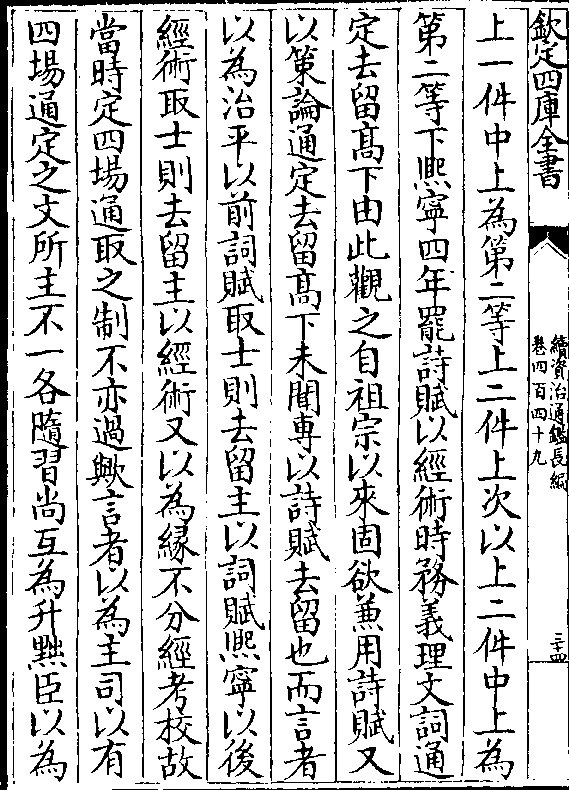 欽定四庫全書
續資治通鑑長編
卷四百四十九
三十四
上一件中上為第二等上二件上次以上二件中上為
第二等下熙寧四年罷詩賦以經術時務義理文詞通
定去留髙下由此觀之自祖宗以來固欲兼用詩賦又
以策論通定去留髙下未聞專以詩賦去留也而言者
以為治平以前詞賦取士則去留主以詞賦熙寧以後
經術取士則去留主以經術又以為緣不分經考校故
當時定四場通取之制不亦過歟言者以為主司以有
四場通定之文所主不一各隨習尚互為升黜臣以為